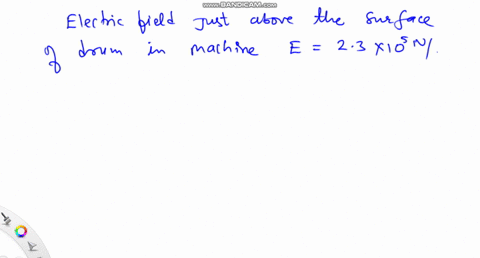 WWW.BANDICAM.COM
Electric field just above the surface
of drum in machine E = 2.3 × 10⁵ N/